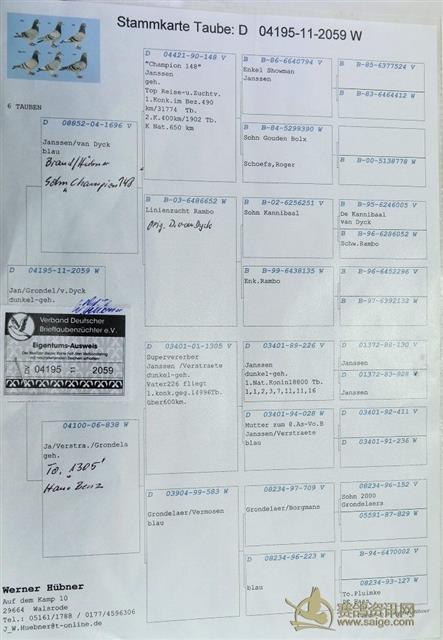 Stammkarte Taube: D 04195-11-2059 W
6 TAUBEN
D 08852-04-1696 V
Janssen/van Dyck
blau
Brand/Hübner
Sohn "Champion 148"
D 04195-11-2059 W
Jan/Grondel/v.Dyck
dunkel-geh.
Verband Deutscher
Brieftaubenzüchter e.V.
Eigentums-Ausweis
04195 11 2059
04100-06-838 W
Ja/Verstra./Grondela
geh.
To. "1305"
Hans Benz
D 04421-90-148 V
"Champion 148"
Janssen
geh.
Top Reise-u.Zuchtv.
1.Konk.im Bez.490
km/31774 Tb.
2.K.400km/1902 Tb.
K Nat.650 km
B B-03-6486652 W
Linienzucht Rambo
orig. D. van Dyck
D 03401-01-1305 V
Supervererber
Janssen /Verstraete
dunkel-geh.
Vater226 fliegt
1.konk.geg.14996Tb.
über600km.
D 03904-99-583 W
Grondelaer/Vermosen
blau
B B-86-6640794 V
Enkel Showman
Janssen
B B-84-5299390 W
Sohn Gouden Bolx
Schoefs,Roger
B B-02-6256251 V
Sohn Kannibaal
B B-99-6438135 W
Enk.Rambo
D 03401-89-226 V
Janssen
dunkel-geh.
1.Nat.Konin18800 Tb.
1,1,2,3,7,11,11,16
D 03401-94-028 W
Mutter zum 8.As-Vo.B
Janssen/Verstraete
blau
D 08234-97-709 V
Grondelaer/Borgmans
D 08234-96-223 W
blau
B B-85-6377524 V
B B-83-6464412 W
B B-00-5138778 W
B B-95-6246005 V
De Kannibaal
van Dyck
B B-96-6286052 W
Schw.Rambo
B B-96-6452296 V
B B-97-6392132 W
D 01372-88-130 V
Janssen
D 01372-83-928 W
Janssen
D 03401-92-411 V
D 03401-91-236 W
D 08234-96-152 V
Sohn 2000
Grondelaers
05591-87-829 W
B-94-6470002 V
08234-93-127 W
To.Pluimke
Werner Hübner
Auf dem Kamp 10
29664 Walsrode
Tel.: 05161/1788 / 0177/4596306
J_W.Huebner@t-online.de
赛鸽资讯网
www.saige.com